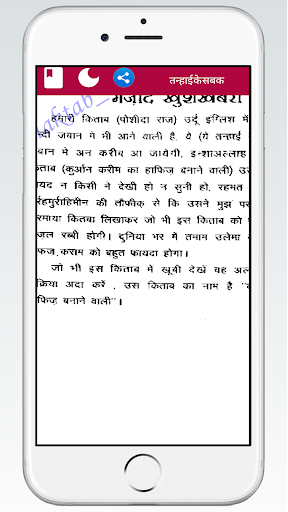 तन्हाईकेसबक
maktab_
मज़ीद खुशखबरी
हमारी किताब (पोशीदा राज) उर्दू इंग्लिश में
दी जयान में भी आने वाली है, ये (ये तन्हाई
बान मे अन करीब आ जायेगी, इ-शाअल्लाह
ताब (कुर्आन करीम का हाफिज बनाने वाली) उ
यद न किसी ने देखी हो न सुनी हो, रहमत
र्रहमुर्राहिमीन की तौफीक़ से कि उसने मुझ पर
रमाया कितबा लिखाकर जो भी इस किताब को
ज़ल रब्बी होगी। दुनिया भर में तमाम उलेमा
फज़ कराम को बहुत फायदा होगा।
जो भी इस किताब मे खूबी देखें वह अल
क्रिया अदा करें , उस किताब का नाम है "
फिज़ बनाने वाली"।